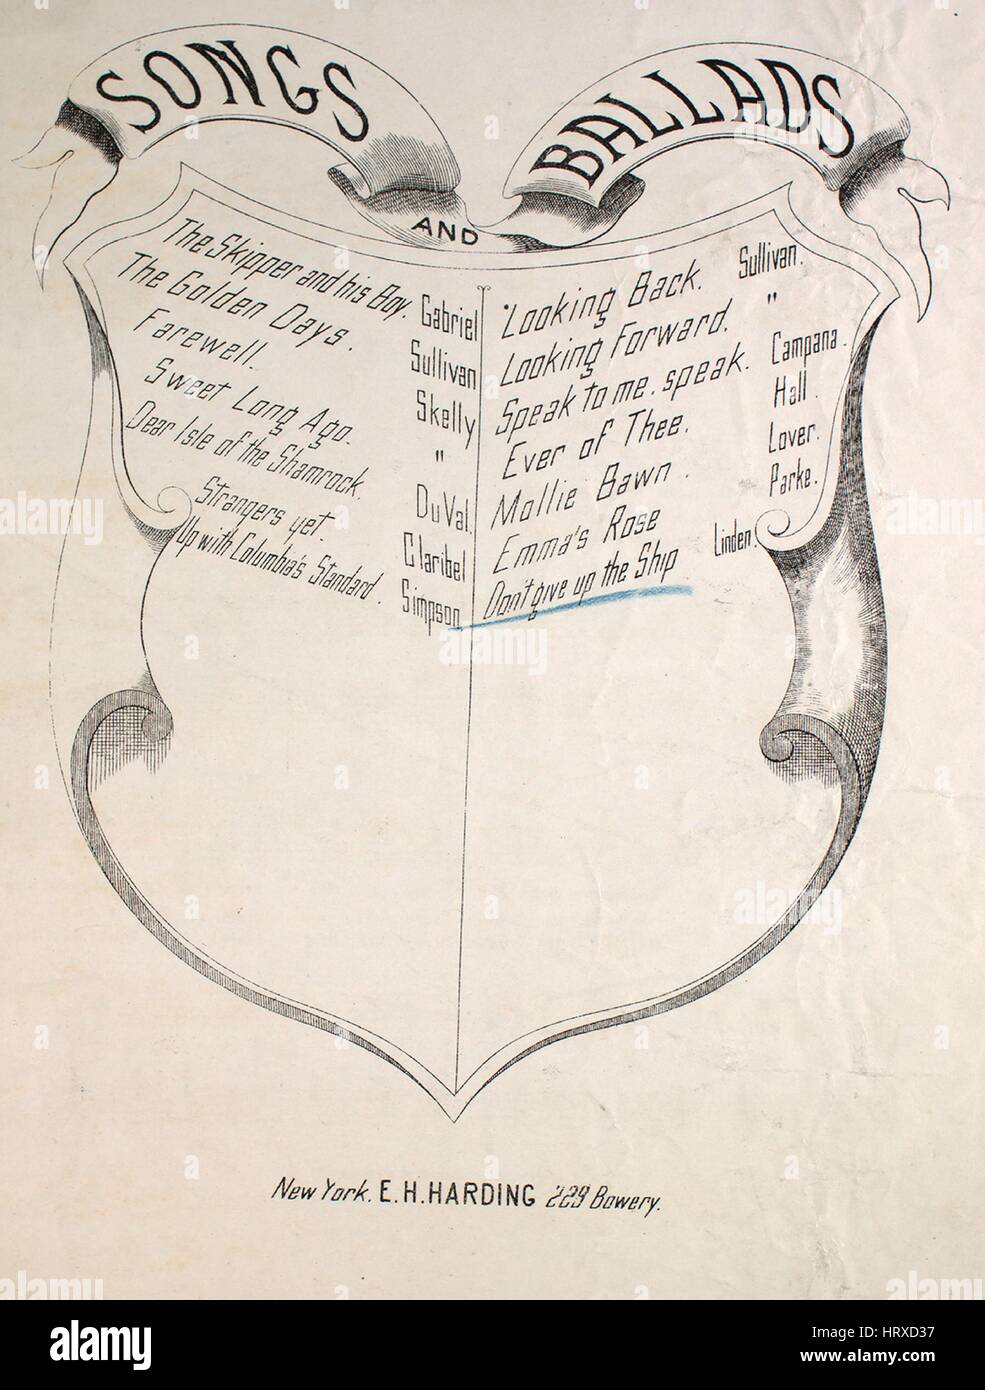 SONGS
AND
BALLADS
The Skipper and his Boy. Gabriel
The Golden Days. Sullivan
Farewell. Skelly
Sweet Long Ago. "
Dear Isle of the Shamrock. DuVal.
Strangers yet. Claribel
Up with Columbia's Standard. Simpson
Looking Back. Sullivan.
Looking Forward. "
Speak to me. speak. Campana.
Ever of Thee. Hall.
Mollie Bawn. Lover.
Emma's Rose Parke.
Don't give up the Ship Linden.
New York. E. H. HARDING 229 Bowery.
alamy
Image ID: HRXD37
www.alamy.com